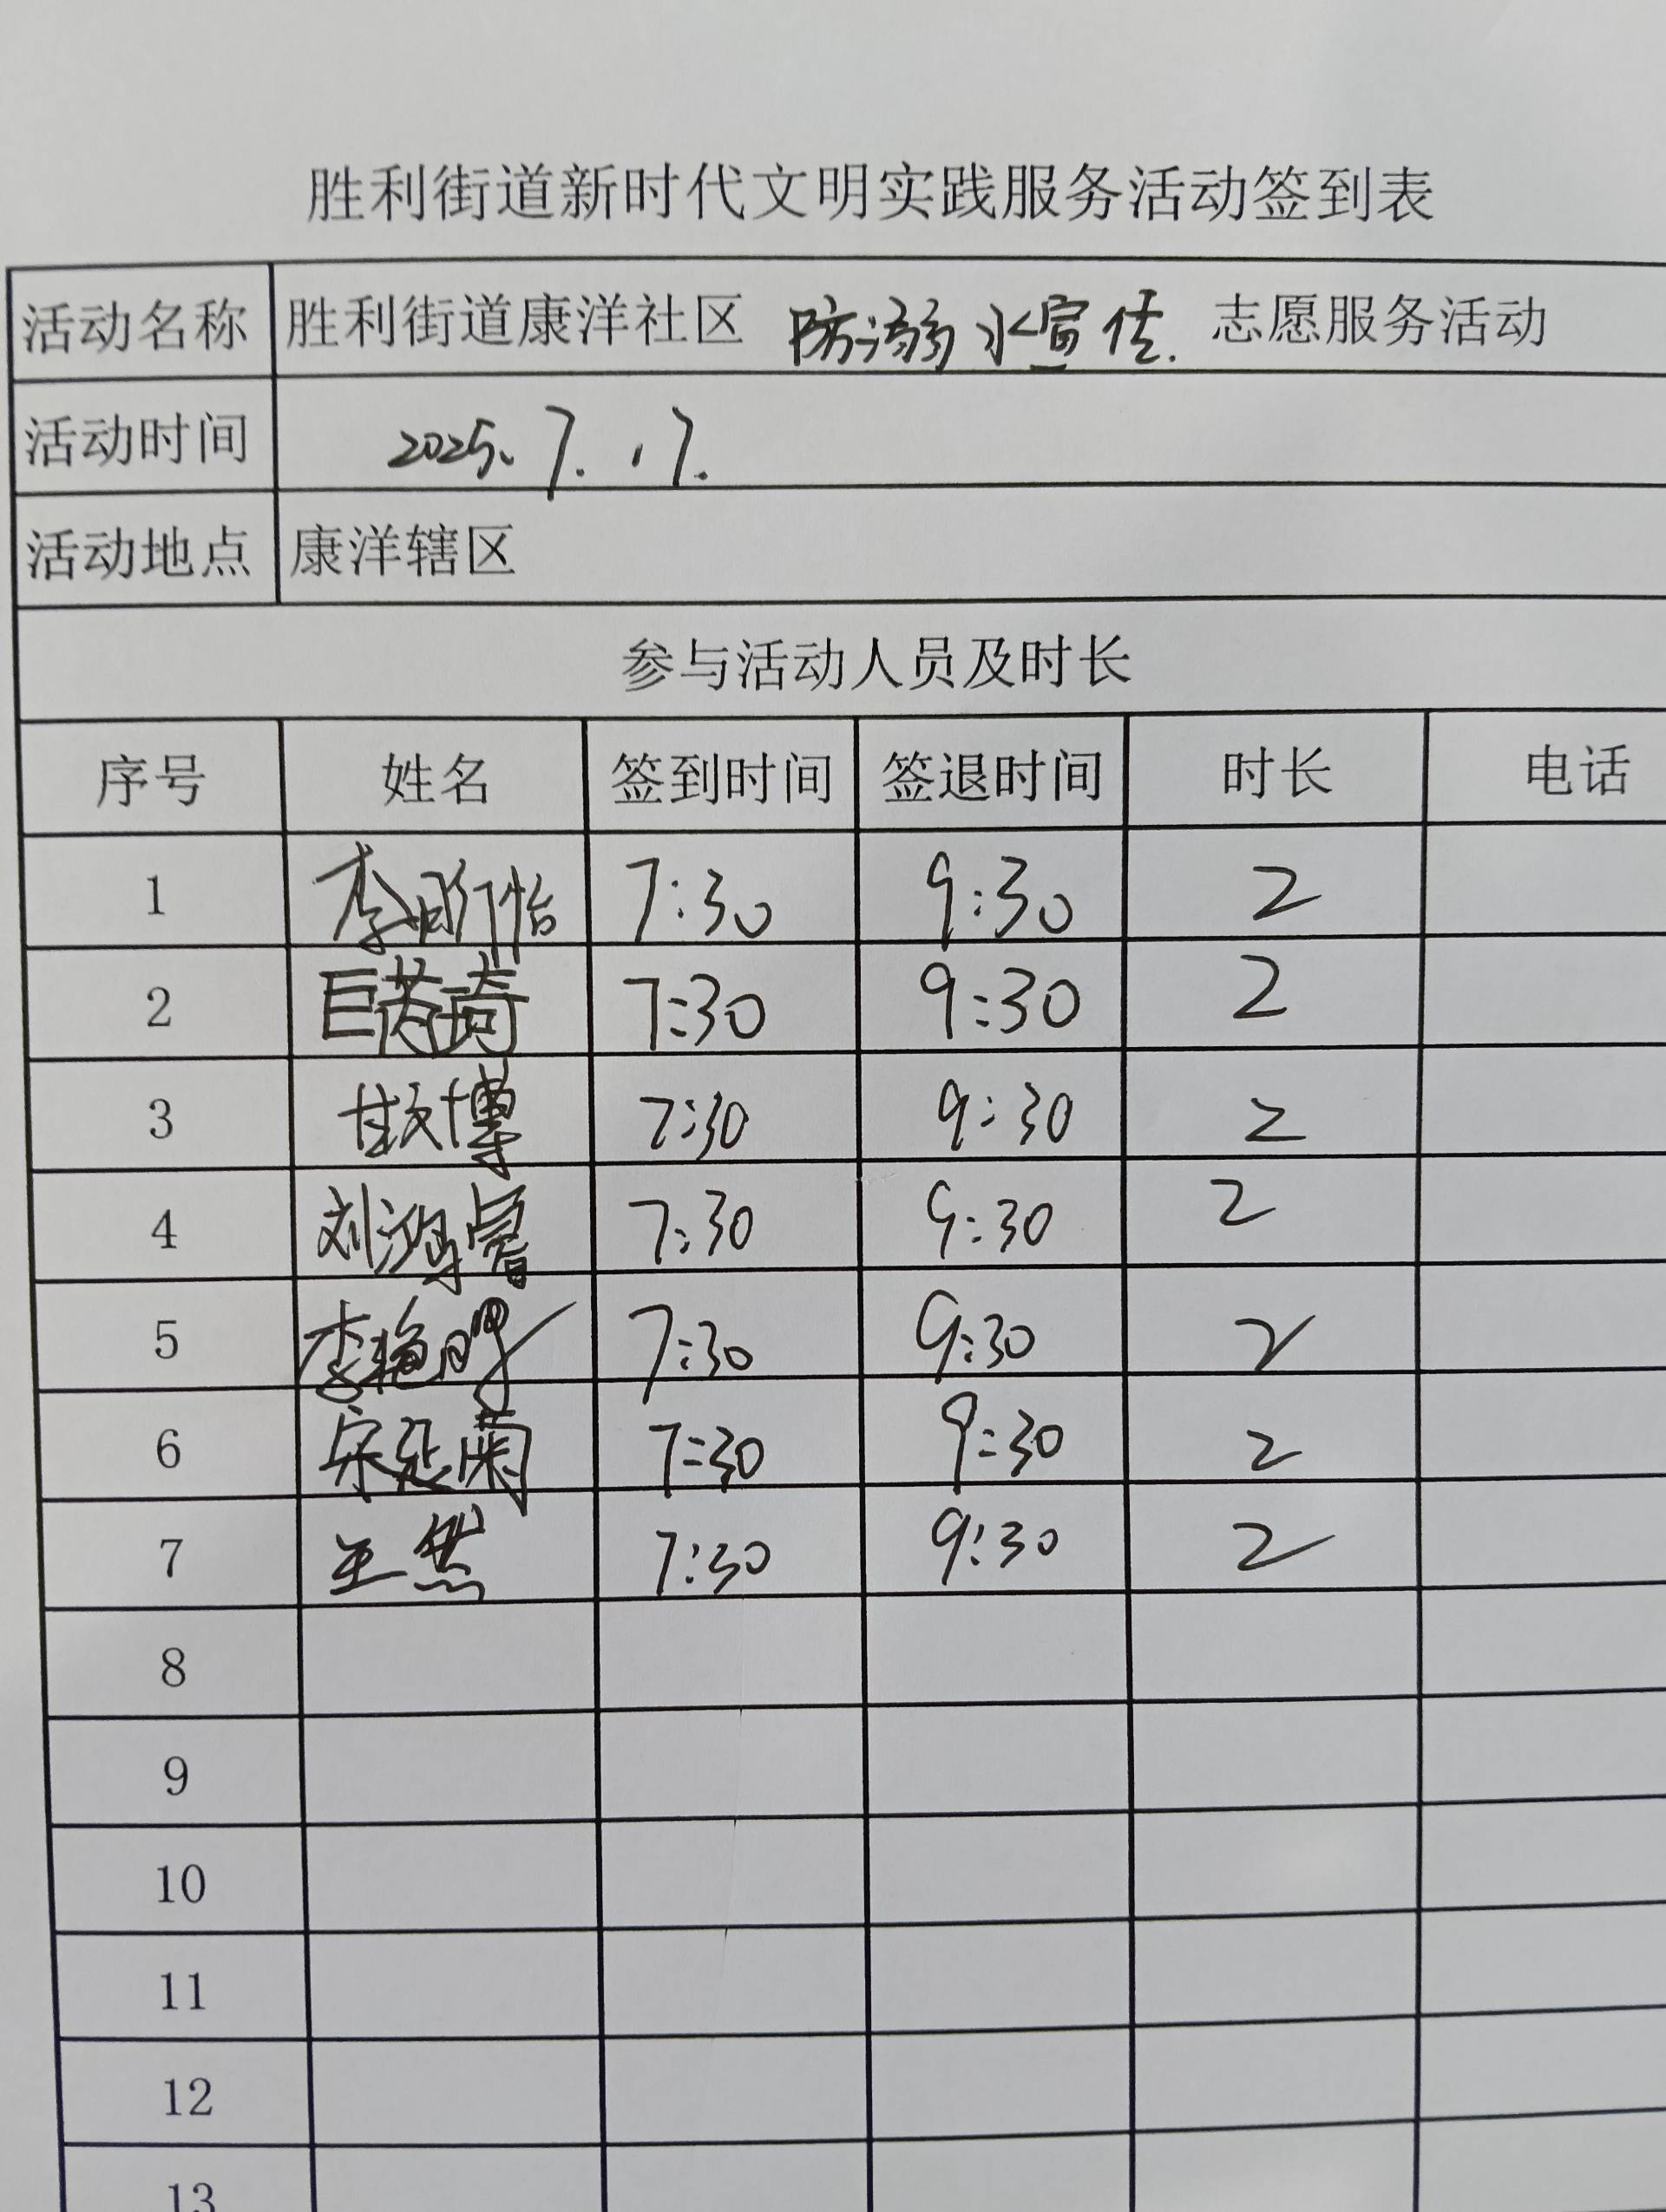 胜利街道新时代文明实践服务活动签到表
活动名称 胜利街道康洋社区 防溺水宣传. 志愿服务活动
活动时间 2025.7.17.
活动地点 康洋辖区
参与活动人员及时长
序号 姓名 签到时间 签退时间 时长 电话
1 李昕怡 7:30 9:30 2
2 巨芮琦 7:30 9:30 2
3 甘文博 7:30 9:30 2
4 刘鸿睿 7:30 9:30 2
5 李艳 7:30 9:30 2
6 宋延菊 7:30 9:30 2
7 王然 7:30 9:30 2
8
9
10
11
12
13